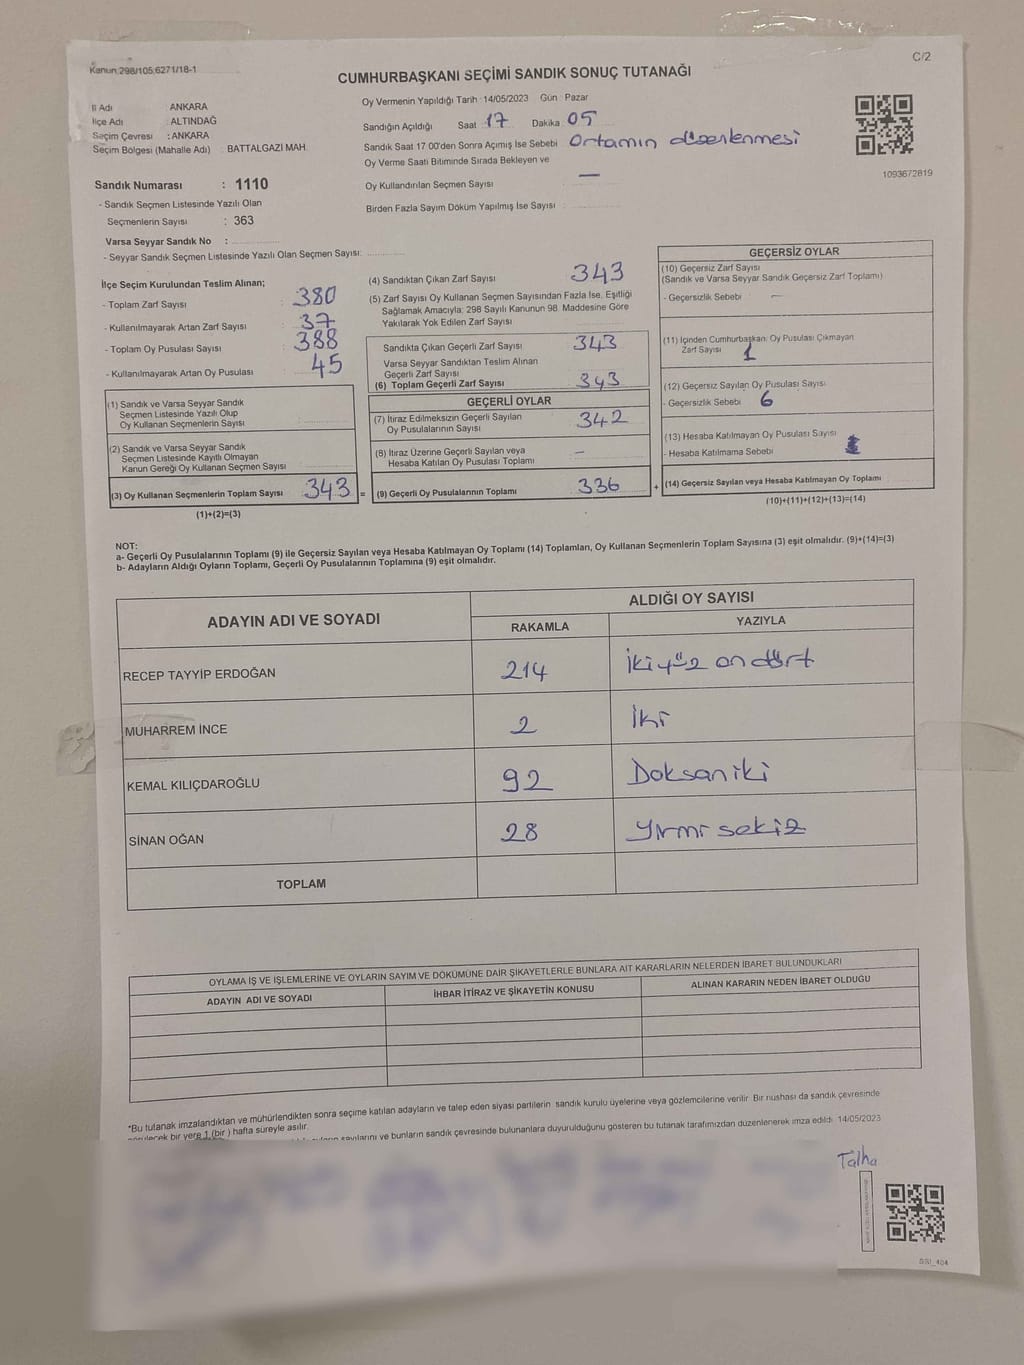 Kanun:298/105;6271/18-1
C/2
CUMHURBAŞKANI SEÇİMİ SANDIK SONUÇ TUTANAĞI
İl Adı ANKARA
İlçe Adı : ALTINDAĞ
Seçim Çevresi : ANKARA
Seçim Bölgesi (Mahalle Adı) : BATTALGAZİ MAH.
Oy Vermenin Yapıldığı Tarih :14/05/2023 Gün : Pazar
Sandığın Açıldığı Saat 17 Dakika 05
Sandık Saat 17:00'den Sonra Açımış İse Sebebi Ortamın düzenlenmesi
Oy Verme Saati Bitiminde Sırada Bekleyen ve
Oy Kullandırılan Seçmen Sayısı —
Birden Fazla Sayım Döküm Yapılmış İse Sayısı :
1093672819
Sandık Numarası : 1110
- Sandık Seçmen Listesinde Yazılı Olan
Seçmenlerin Sayısı : 363
Varsa Seyyar Sandık No :
- Seyyar Sandık Seçmen Listesinde Yazılı Olan Seçmen Sayısı:
İlçe Seçim Kurulundan Teslim Alınan;
- Toplam Zarf Sayısı : 380
- Kullanılmayarak Artan Zarf Sayısı : 37
- Toplam Oy Pusulası Sayısı : 388
- Kullanılmayarak Artan Oy Pusulası : 45
(1) Sandık ve Varsa Seyyar Sandık
Seçmen Listesinde Yazılı Olup
Oy Kullanan Seçmenlerin Sayısı :
(2) Sandık ve Varsa Seyyar Sandık
Seçmen Listesinde Kayıtlı Olmayan
Kanun Gereği Oy Kullanan Seçmen Sayısı :
(3) Oy Kullanan Seçmenlerin Toplam Sayısı : 343 =
(1)+(2)=(3)
(4) Sandıktan Çıkan Zarf Sayısı 343
(5) Zarf Sayısı Oy Kullanan Seçmen Sayısından Fazla İse, Eşitliği
Sağlamak Amacıyla; 298 Sayılı Kanunun 98. Maddesine Göre
Yakılarak Yok Edilen Zarf Sayısı :
Sandıkta Çıkan Geçerli Zarf Sayısı : 343
Varsa Seyyar Sandıktan Teslim Alınan
Geçerli Zarf Sayısı :
(6) Toplam Geçerli Zarf Sayısı : 343
GEÇERLİ OYLAR
(7) İtiraz Edilmeksizin Geçerli Sayılan
Oy Pusulalarının Sayısı : 342
(8) İtiraz Üzerine Geçerli Sayılan veya
Hesaba Katılan Oy Pusulası Toplamı : —
(9) Geçerli Oy Pusulalarının Toplamı : 336 +
GEÇERSİZ OYLAR
(10) Geçersiz Zarf Sayısı
(Sandık ve Varsa Seyyar Sandık Geçersiz Zarf Toplamı)
- Geçersizlik Sebebi : —
(11) İçinden Cumhurbaşkanı Oy Pusulası Çıkmayan
Zarf Sayısı : 1
(12) Geçersiz Sayılan Oy Pusulası Sayısı :
- Geçersizlik Sebebi : 6
(13) Hesaba Katılmayan Oy Pusulası Sayısı
- Hesaba Katılmama Sebebi :
(14) Geçersiz Sayılan veya Hesaba Katılmayan Oy Toplamı :
(10)+(11)+(12)+(13)=(14)
NOT:
a- Geçerli Oy Pusulalarının Toplamı (9) ile Geçersiz Sayılan veya Hesaba Katılmayan Oy Toplamı (14) Toplamları, Oy Kullanan Seçmenlerin Toplam Sayısına (3) eşit olmalıdır. (9)+(14)=(3)
b- Adayların Aldığı Oyların Toplamı, Geçerli Oy Pusulalarının Toplamına (9) eşit olmalıdır.
ADAYIN ADI VE SOYADI ALDIĞI OY SAYISI
RAKAMLA YAZIYLA
RECEP TAYYİP ERDOĞAN 214 İkiyüz on dört
MUHARREM İNCE 2 İki
KEMAL KILIÇDAROĞLU 92 Doksan iki
SİNAN OĞAN 28 yirmi sekiz
TOPLAM
OYLAMA İŞ VE İŞLEMLERİNE VE OYLARIN SAYIM VE DÖKÜMÜNE DAİR ŞİKAYETLERLE BUNLARA AİT KARARLARIN NELERDEN İBARET BULUNDUKLARI
ADAYIN ADI VE SOYADI İHBAR İTİRAZ VE ŞİKAYETİN KONUSU ALINAN KARARIN NEDEN İBARET OLDUĞU
*Bu tutanak imzalandıktan ve mühürlendikten sonra seçime katılan adayların ve talep eden siyasi partilerin sandık kurulu üyelerine veya gözlemcilerine verilir. Bir nüshası da sandık çevresinde
görülecek bir yere 1 (bir ) hafta süreyle asılır.
sayılarını ve bunların sandık çevresinde bulunanlara duyurulduğunu gösteren bu tutanak tarafımızdan düzenlenerek imza edildi. 14/05/2023
Talha